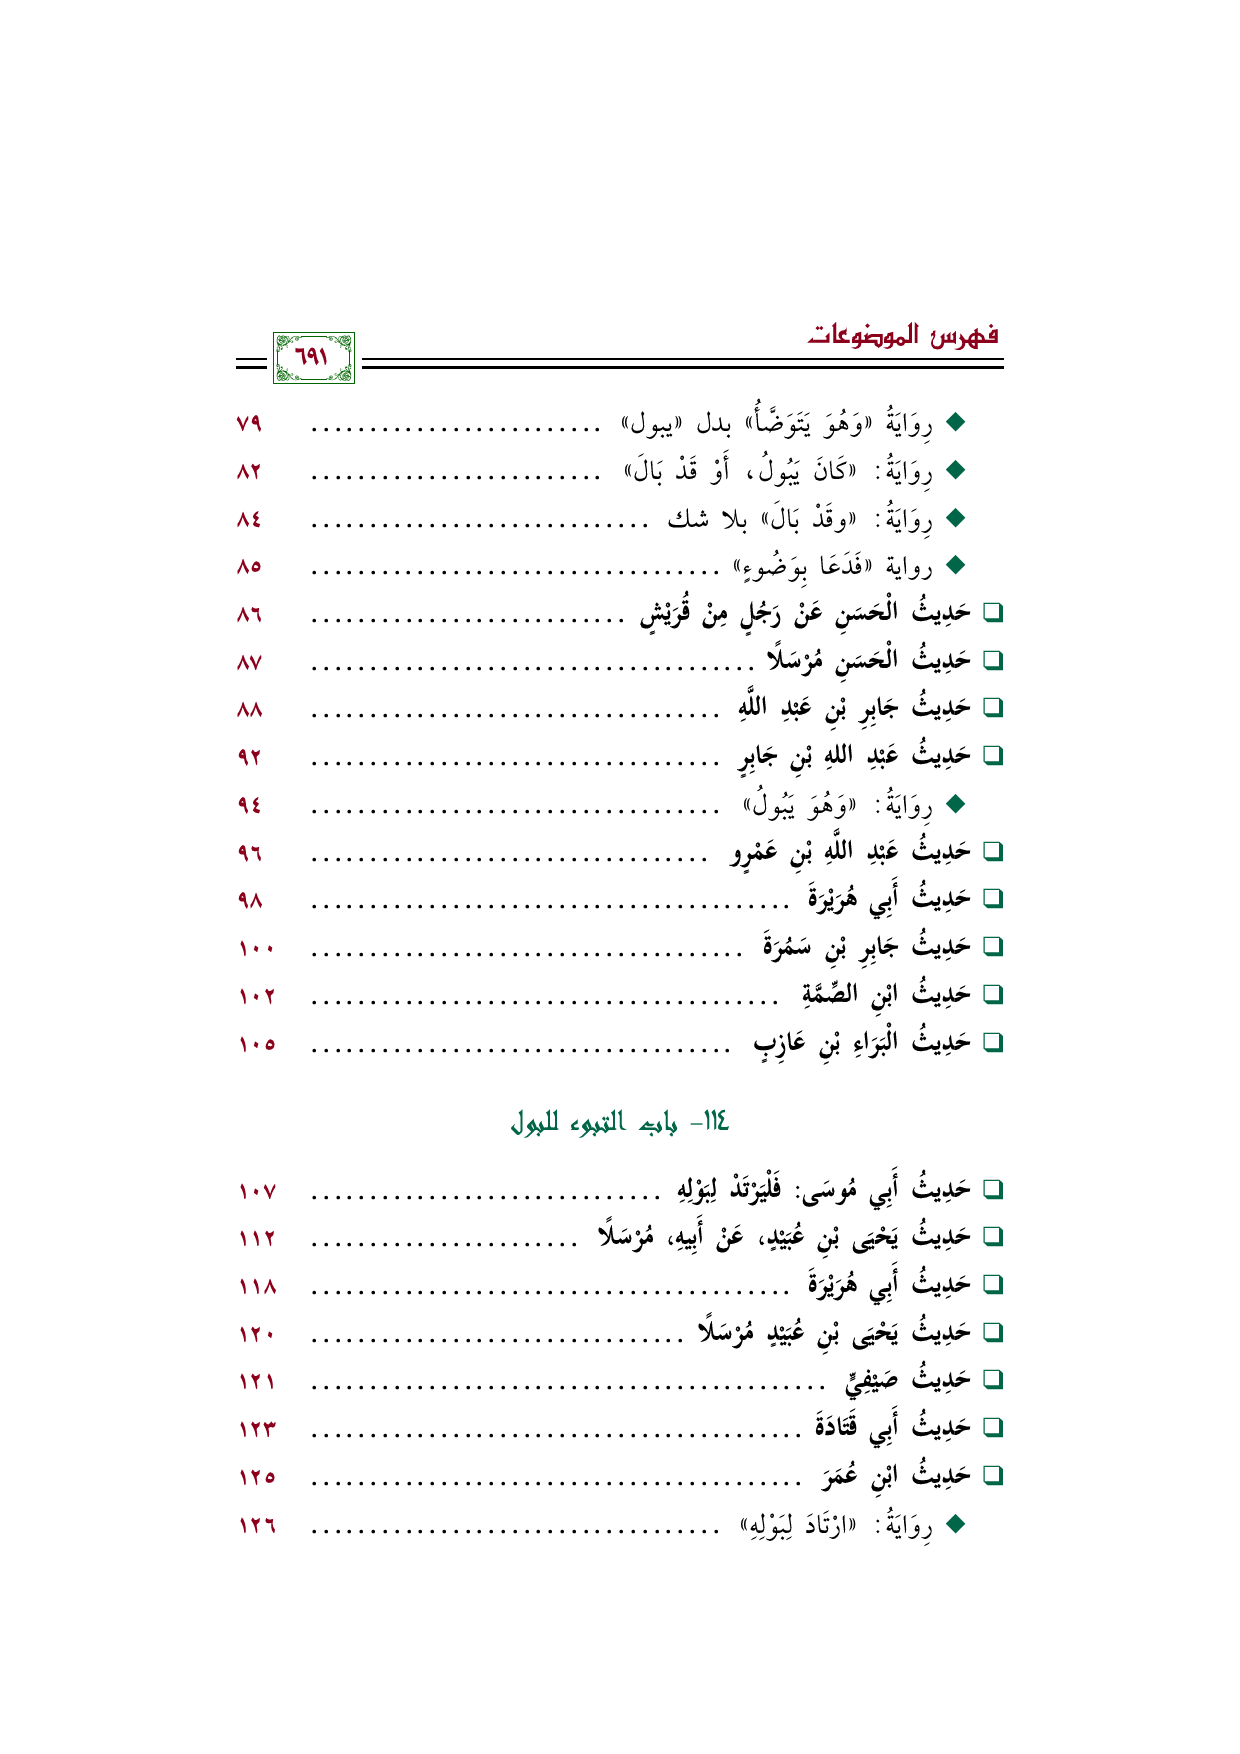 فهرس الموضوعات
٦٩١
◆ رِوَايَةُ «وَهُوَ يَتَوَضَّأُ» بدل «يبول» ......................... ٧٩
◆ رِوَايَةُ: «كَانَ يَبُولُ، أَوْ قَدْ بَالَ» ......................... ٨٢
◆ رِوَايَةُ: «وقَدْ بَالَ» بلا شك ............................. ٨٤
◆ رواية «فَدَعَا بِوَضُوءٍ» ................................... ٨٥
❑ حَدِيثُ الْحَسَنِ عَنْ رَجُلٍ مِنْ قُرَيْشٍ ........................... ٨٦
❑ حَدِيثُ الْحَسَنِ مُرْسَلًا ...................................... ٨٧
❑ حَدِيثُ جَابِرِ بْنِ عَبْدِ اللَّهِ ................................... ٨٨
❑ حَدِيثُ عَبْدِ اللهِ بْنِ جَابِرٍ ................................... ٩٢
◆ رِوَايَةُ: «وَهُوَ يَبُولُ» ................................... ٩٤
❑ حَدِيثُ عَبْدِ اللَّهِ بْنِ عَمْرٍو .................................. ٩٦
❑ حَدِيثُ أَبِي هُرَيْرَةَ ......................................... ٩٨
❑ حَدِيثُ جَابِرِ بْنِ سَمُرَةَ ..................................... ١٠٠
❑ حَدِيثُ ابْنِ الصِّمَّةِ ........................................ ١٠٢
❑ حَدِيثُ الْبَرَاءِ بْنِ عَازِبٍ .................................... ١٠٥
١١٤- باب التبوء للبول
❑ حَدِيثُ أَبِي مُوسَى: فَلْيَرْتَدْ لِبَوْلِهِ .............................. ١٠٧
❑ حَدِيثُ يَحْيَى بْنِ عُبَيْدٍ، عَنْ أَبِيهِ، مُرْسَلًا ....................... ١١٢
❑ حَدِيثُ أَبِي هُرَيْرَةَ ......................................... ١١٨
❑ حَدِيثُ يَحْيَى بْنِ عُبَيْدٍ مُرْسَلًا ................................ ١٢٠
❑ حَدِيثُ صَيْفِيٍّ ............................................ ١٢١
❑ حَدِيثُ أَبِي قَتَادَةَ .......................................... ١٢٣
❑ حَدِيثُ ابْنِ عُمَرَ .......................................... ١٢٥
◆ رِوَايَةُ: «ارْتَادَ لِبَوْلِهِ» ................................... ١٢٦